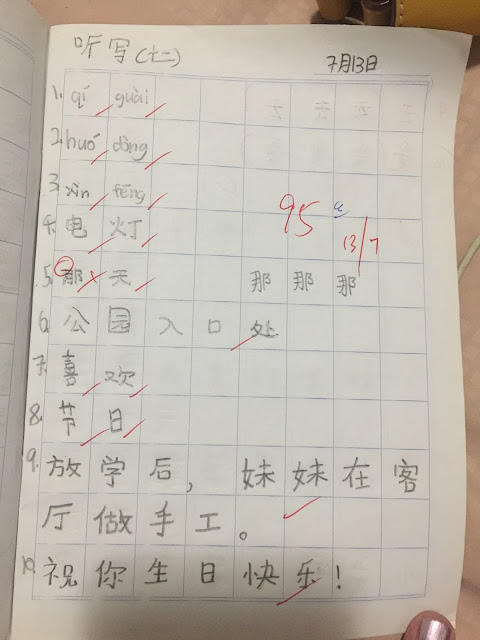 听写(十二)
7月13日
1. qí guài
2. huó dòng
3. xìn fēng
4. 电灯
95
13/7
5. 那天 那那那
6. 公园入口处
7. 喜欢
8. 节日
9. 放学后,妹妹在客
厅做手工。
10. 祝你生日快乐!